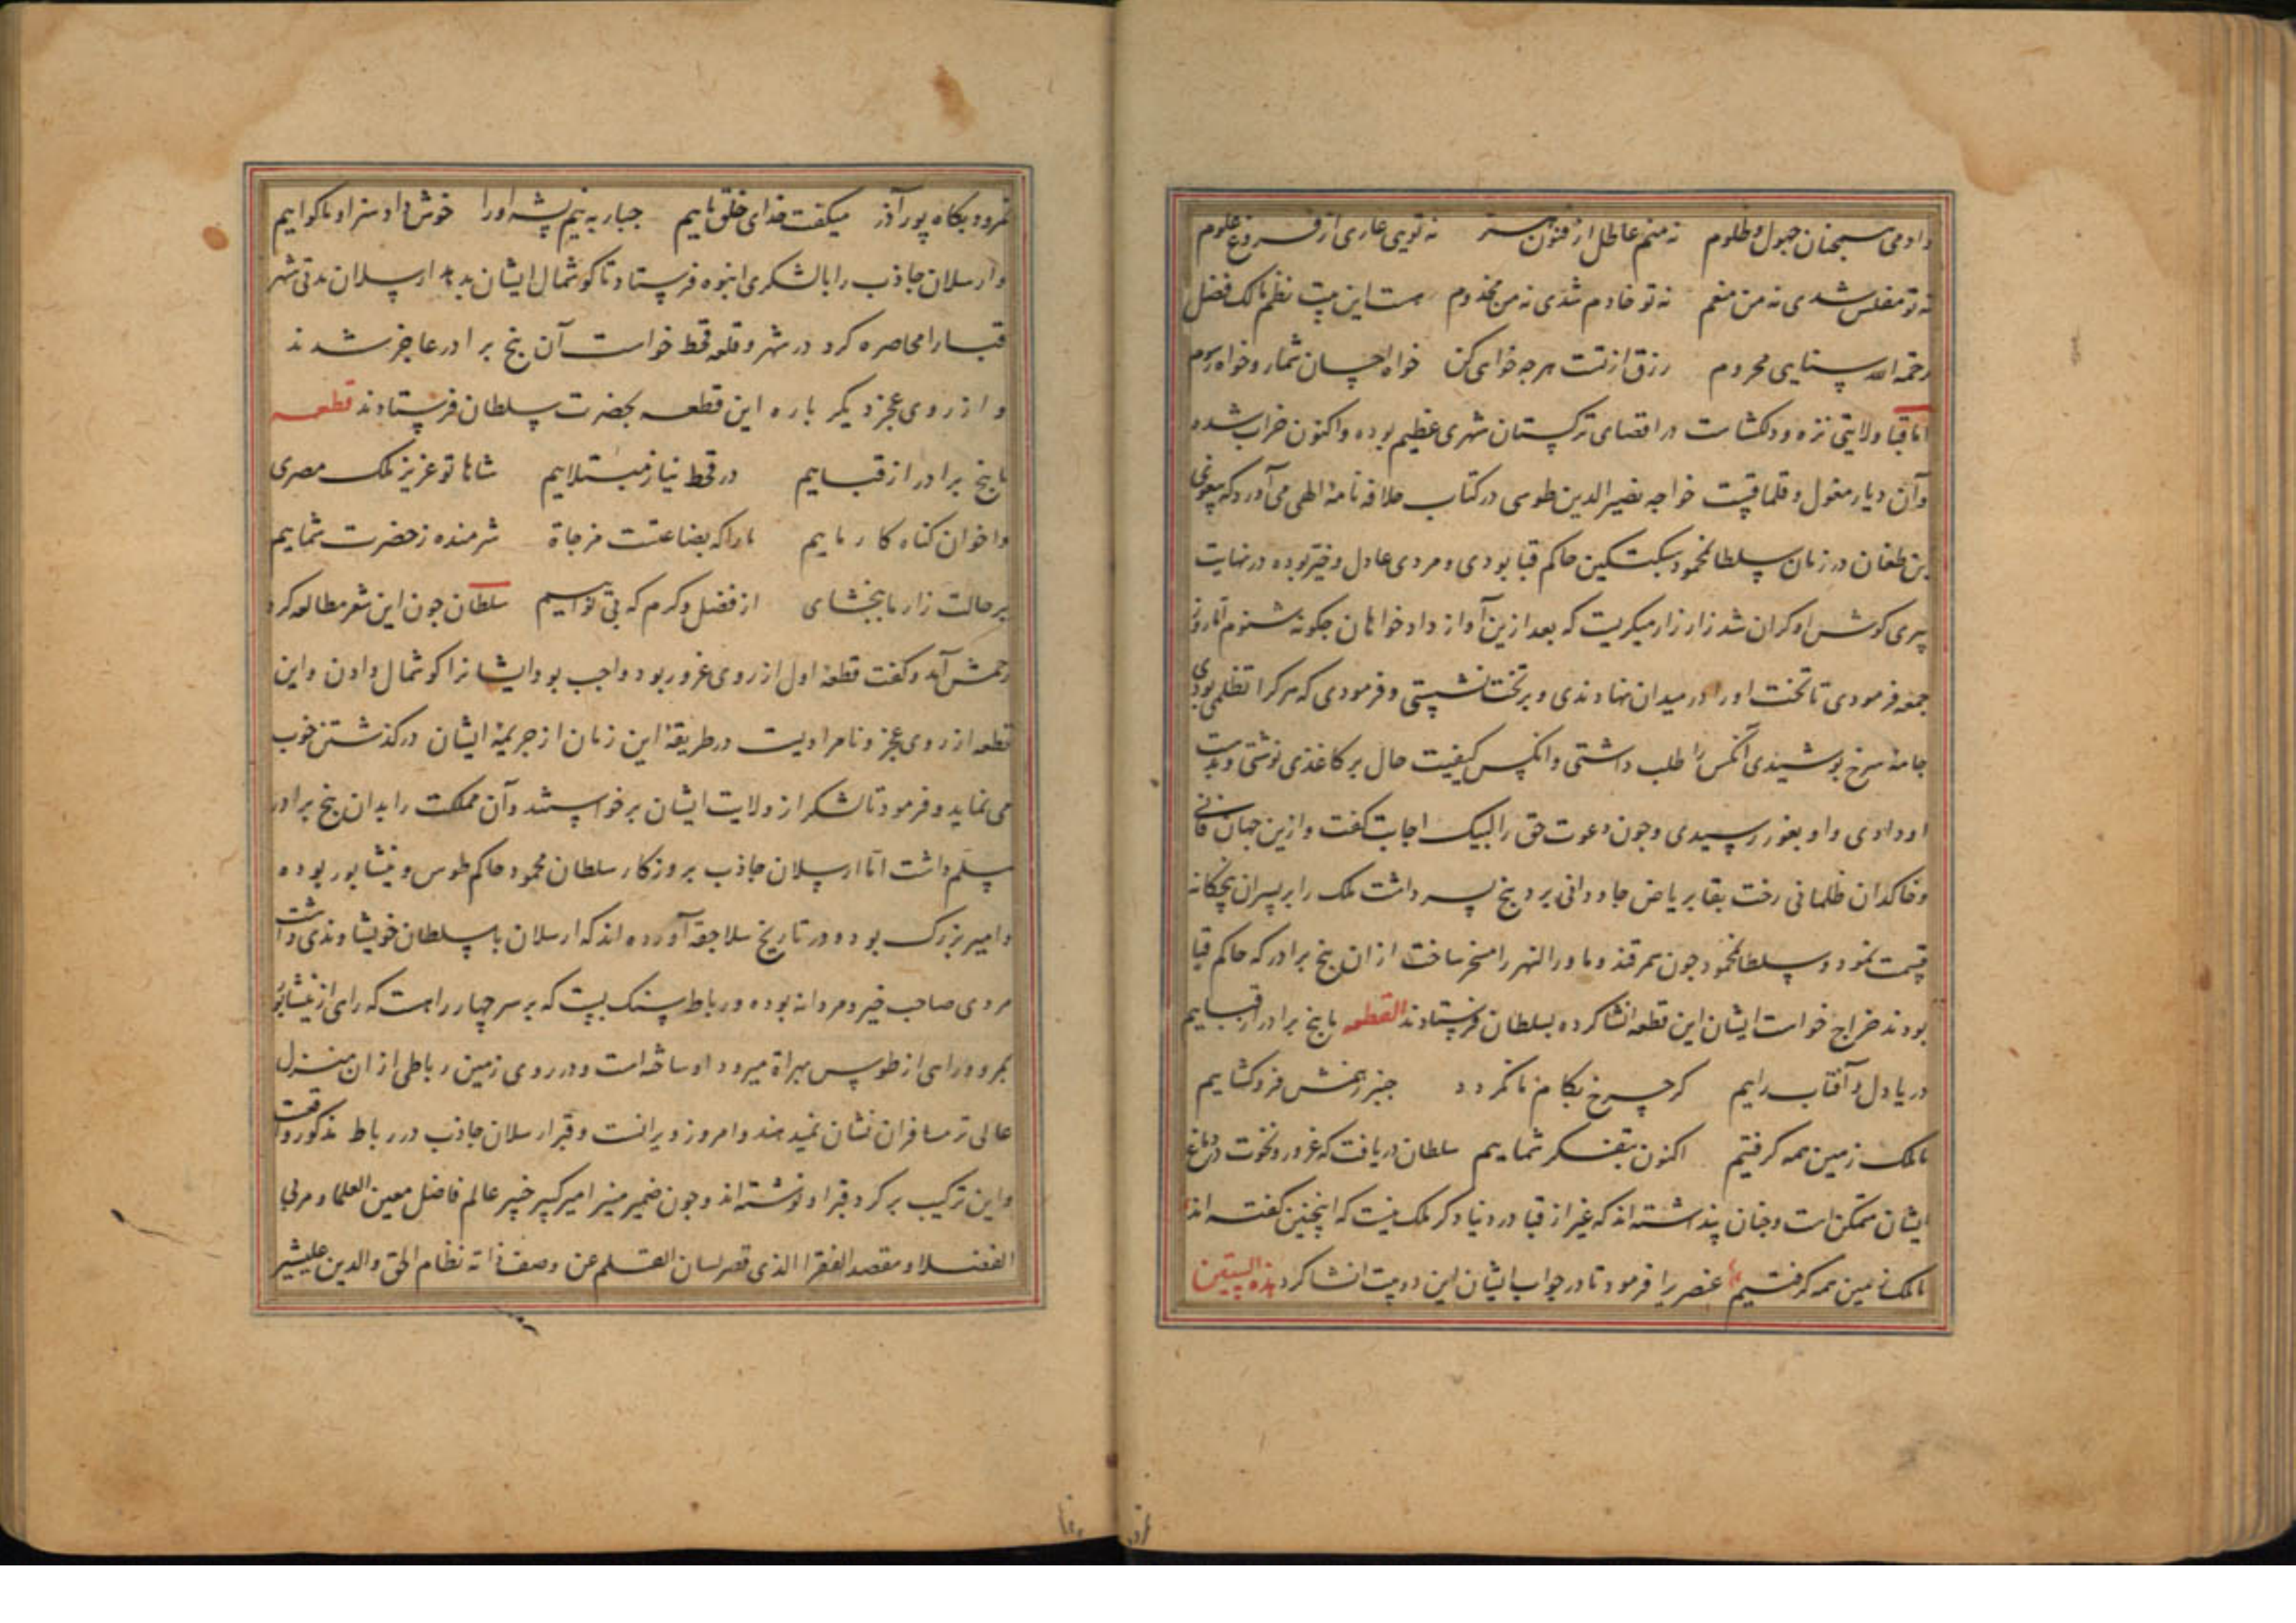 دادمی همچنان جهول و ظلوم نه منم عاطل از فنون هنر نه تویی عاری از فروغ علوم
نه تو مفلس شدی نه من منعم نه تو خادم شدی نه من مخدوم هست این بیت نظم مالک فضل
رحمة الله سنایی محروم رزق از تست هرجه خواهی کن خواه احسان شمار و خواه رسوم
اما قبا ولایتی نزه و دلکشاست در اقصای ترکستان شهری عظیم بوده و اکنون خراب شده
و آن دیار مغول و قلماقست خواجه نصیر الدین طوسی در کتاب خلافه نامهٔ الهی می آورد که پیغوی
بن طغان در زمان سلطان محمود سبکتکین حاکم قبا بودی و مردی عادل و خیر بوده در نهایت
پیری کوشش او کران شد زار زار میکریست که بعد ازین آواز دادخواهان جکونه شنوم اما روز
جمعه فرمودی تا تخت او را در میدان نهادندی و بر تخت نشستی و فرمودی که هر کرا تظلمی بودی
جامهٔ سرخ بوشیدی آنکس را طلب داشتی و انکس کیفیت حال بر کاغذی نوشتی و بدست
او دادی و او بغور رسیدی و جون دعوت حق را لبیک اجابت کفت و ازین جهان فانی
و خاکدان ظلمانی رخت بقا بریاض جاودانی برد پنج پسر داشت ملک را بر پسران پنجکانه
قسمت نمود و سلطان محمود جون سمرقند و ماورالنهر را مسخر ساخت از ان پنج برادر که حاکم قبا
بودند خراج خواست ایشان این قطعه انشا کرده بسلطان فرستادند القطعه ما پنج برادر از قباییم
دریا دل و آفتاب راییم کر جرخ بکام ما نکردد جنبر زهمش فروکشاییم
ما ملک زمین همه کرفتیم اکنون بتفکر شماییم سلطان دریافت که غرور و نخوت در دماغ
ایشان متمکن است و جنان پنداشته اند که غیر از قبا در دنیا دکر ملک نیست که اینجنین کفته اند
ما ملک زمین همه کرفتیم عنصری را فرمود تا در جواب ایشان این دو بیت انشا کرد هذه البیتین
نمرود بکاه پور آذر میکفت خدای خلق ماییم جبار به نیم پشه او را خوش داد سزا و ما کواییم
و ارسلان جاذب را با لشکری انبوه فرستاد تا کوشمال ایشان بدهد ارسلان مدتی شهر
قبا را محاصره کرد در شهر و قلعه قحط خواست آن پنج برادر عاجز شدند
و از روی عجز دیکر باره این قطعه بحضرت سلطان فرستادند قطعه
ما پنج برادر از قباییم در قحط نیاز مبتلاییم شاها تو عزیز ملک مصری
و اخوان کناه کار ماییم ما را که بضاعتست مزجاة شرمنده ز حضرت شماییم
بر حالت زار ما ببخشای از فضل و کرم که بی نواییم سلطان جون این شعر مطالعه کرد
رحمش آمد و کفت قطعهٔ اول از روی غرور بود واجب بود ایشانرا کوشمال دادن و این
قطعه از روی عجز و نامرادیست در طریقهٔ این زمان از جریمهٔ ایشان درکذشتن خوب
می نماید و فرمود تا لشکر از ولایت ایشان برخواستند و آن مملکت را بدان پنج برادر
مسلم داشت اما ارسلان جاذب بروزکار سلطان محمود حاکم طوس و نیشابور بوده
و امیر بزرک بوده و در تاریخ سلاجقه آورده اند که ارسلان با سلطان خویشاوندی داشت
مردی صاحب خیر و مردانه بوده و رباط سنک بست که بر سر جهار راهست که راهی از نیشابور
بمرو و راهی از طوس بهراة میرود او ساخته است و در روی زمین رباطی از ان منزل
عالی تر مسافران نشان نمیدهند و امروز ویرانست و قبر ارسلان جاذب در رباط مذکور واقعست
و این ترکیب بر کرد قبر او نوشته اند و جون ضمیر منیر امیر کبیر خبیر عالم فاضل معین العلما و مربی
الفضلا و مقصد الفقرا الذی قصر لسان القلم عن وصف ذاته نظام الحق والدین علیشیر
نمرود